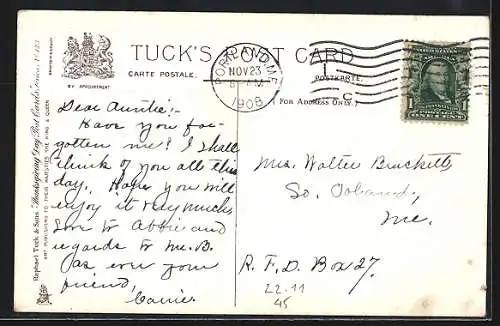 TUCK'S POST CARD
CARTE POSTALE.
POSTKARTE.
BY APPOINTMENT
( FOR ADDRESS ONLY. )
PORTLAND, ME.
NOV 23
1908
UNITED STATES
1 1
ONE CENT
Raphael Tuck & Sons' "Thanksgiving Day Post Cards" Series
ART PUBLISHERS TO THEIR MAJESTIES THE KING & QUEEN
Dear Auntie:-
Have you for-
gotten me? I shall
think of you all this
day. Hope you will
enjoy it very much
love to Abbie and
regards to Mr. B.
As ever your
friend,
Carrie.
Mrs. Walter Bracketts
So.
Me.
R. F. D. Box 27.
22-11
45